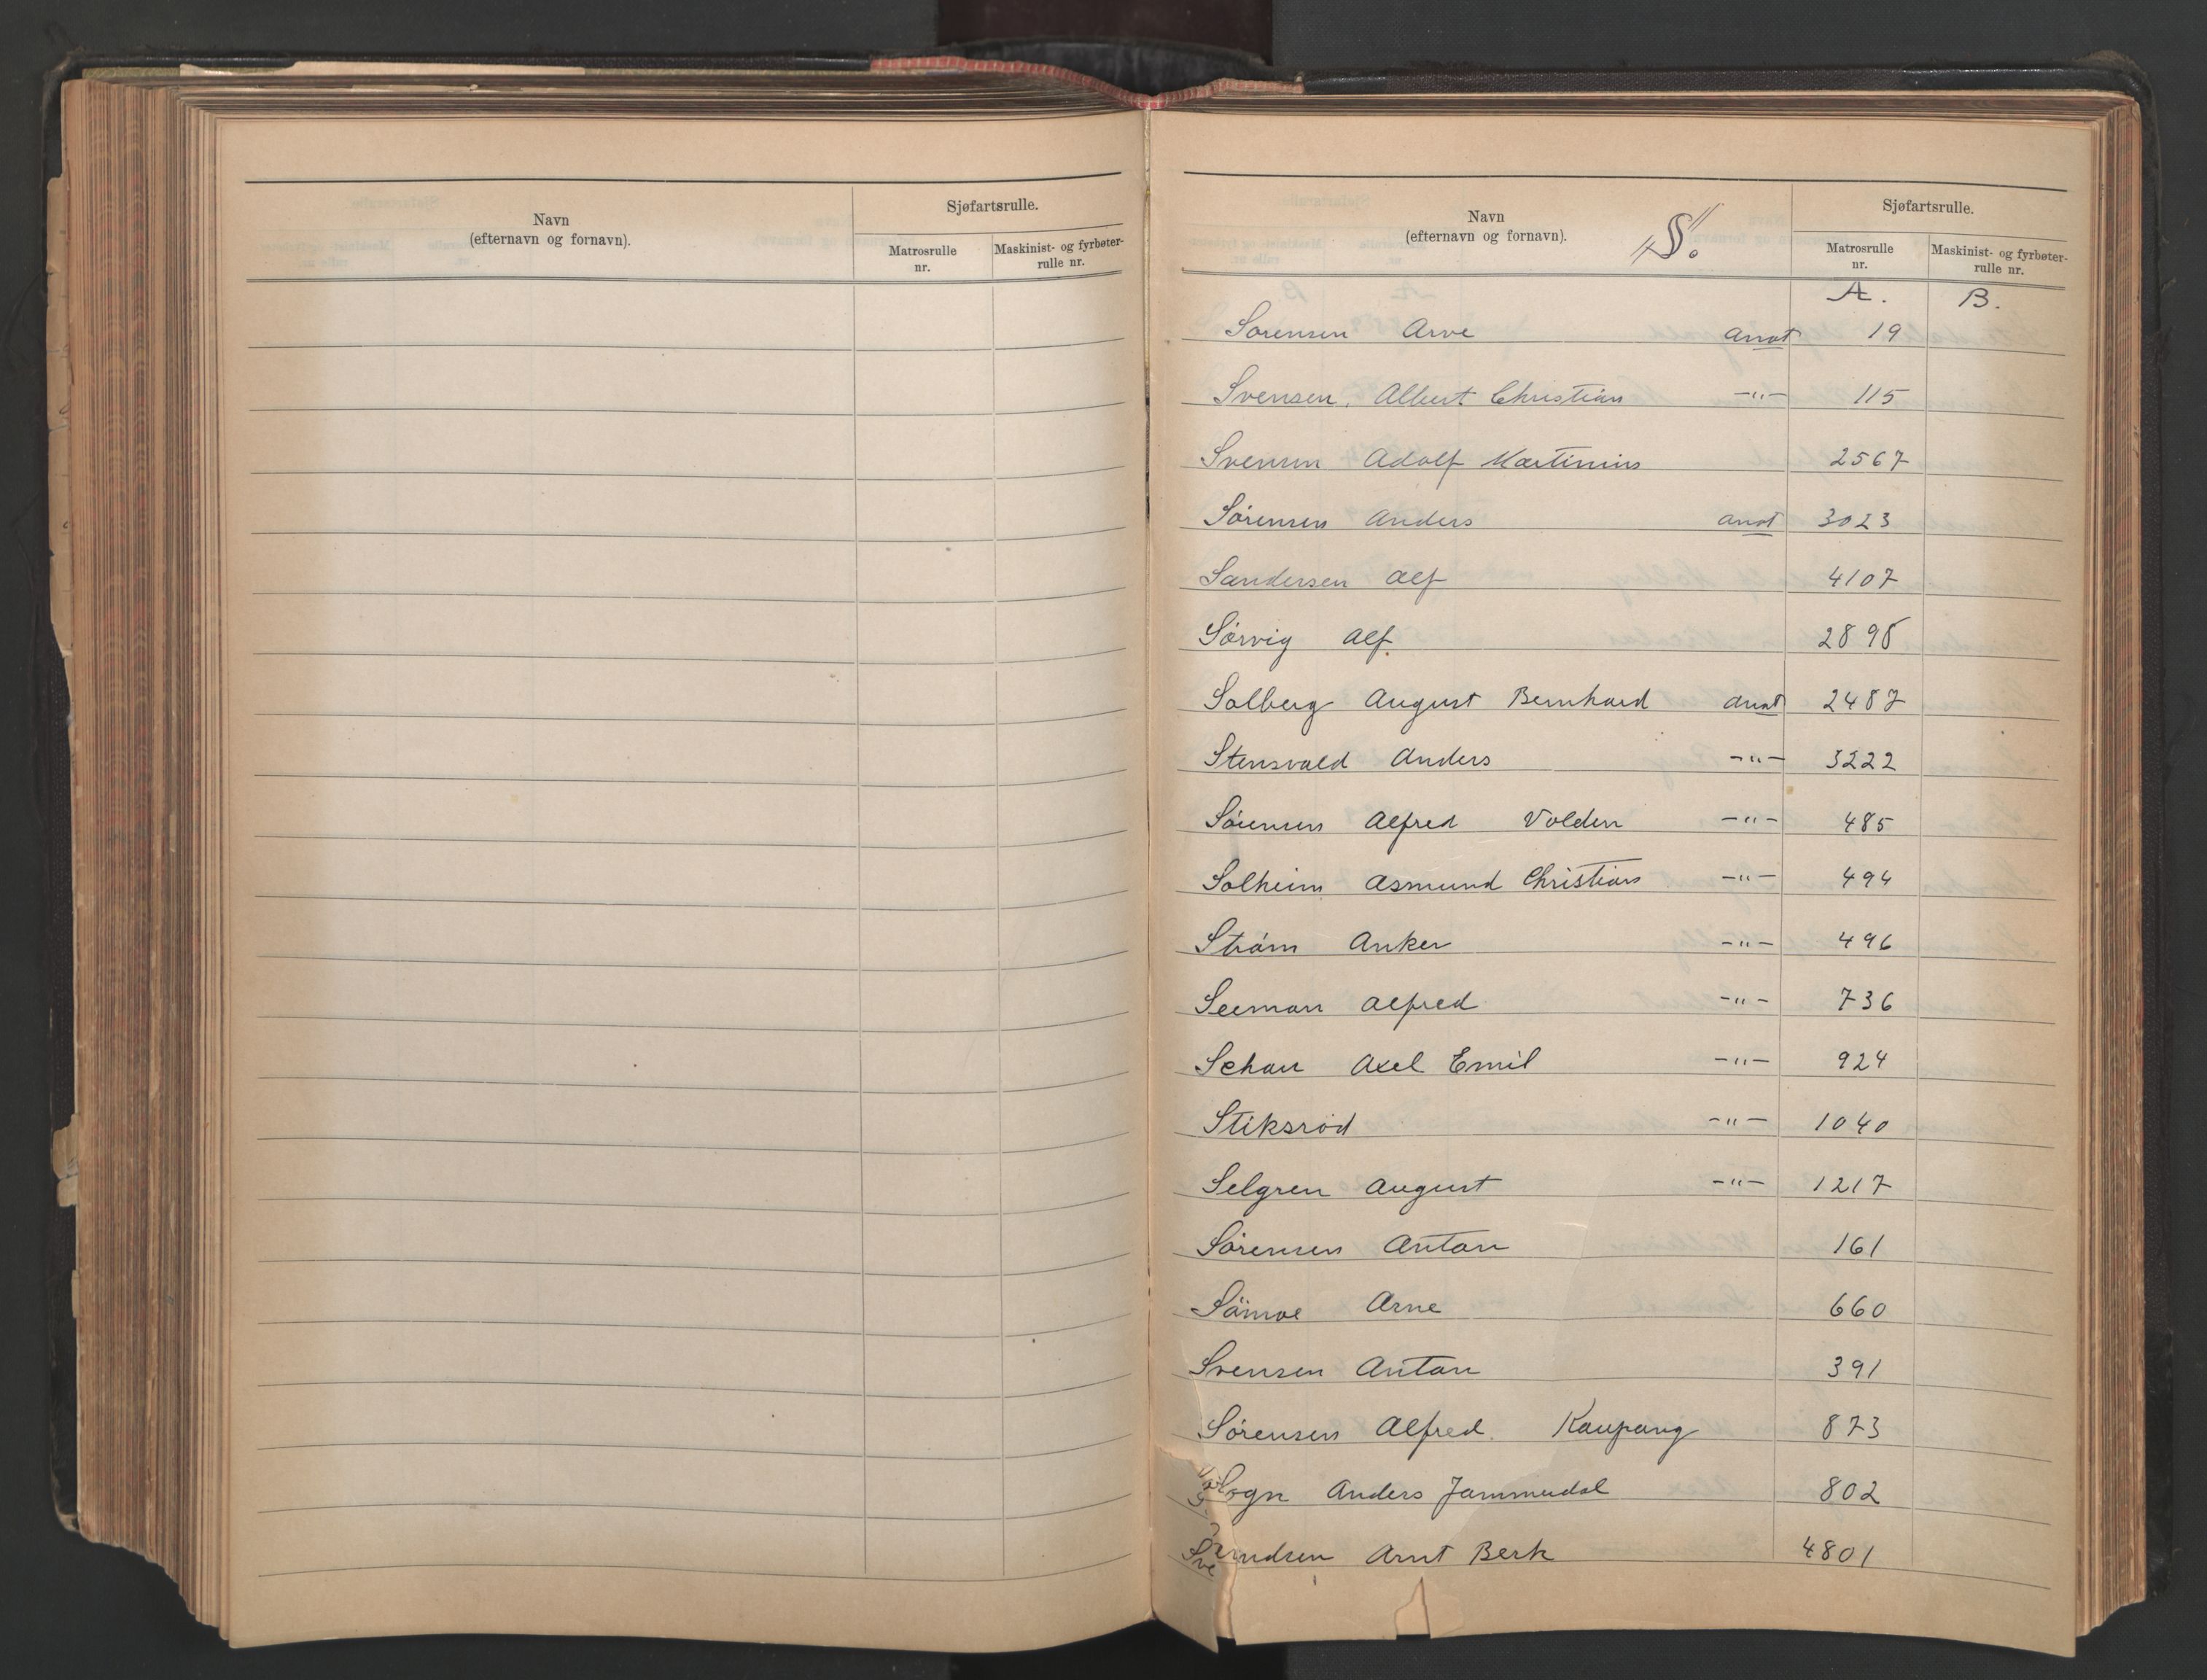 Navn
(efternavn og fornavn).
Sjøfartsrulle.
Matrosrulle
nr.
Maskinist- og fyrbøter-
rulle nr.
Navn
(efternavn og fornavn).
"S."
Sjøfartsrulle.
Matrosrulle
nr.
Maskinist- og fyrbøter-
rulle nr.
A. B.
Sorensen Arve anot 19
Svensen, Albert Christian -"- 115
Svensen Adolf Martinius 2567
Sørensen Anders anot 3023
Sandersen Alf 4107
Sørvig Alf 2898
Solberg August Bernhard anot 2487
Stensvald Anders -"- 3222
Sørensen Alfred Volden -"- 485
Solheim Asmund Christian -"- 494
Strøm Anker -"- 496
Seeman Alfred -"- 736
Schau Axel Emil -"- 924
Stiksrød -"- 1040
Selgren August -"- 1217
Sørensen Anton 161
Arne 660
Svensen Anton 391
Sørensen Alfred Kaupang 873
Sogn Anders Jammerdal 802
Svendsen Arnt Berk 4801